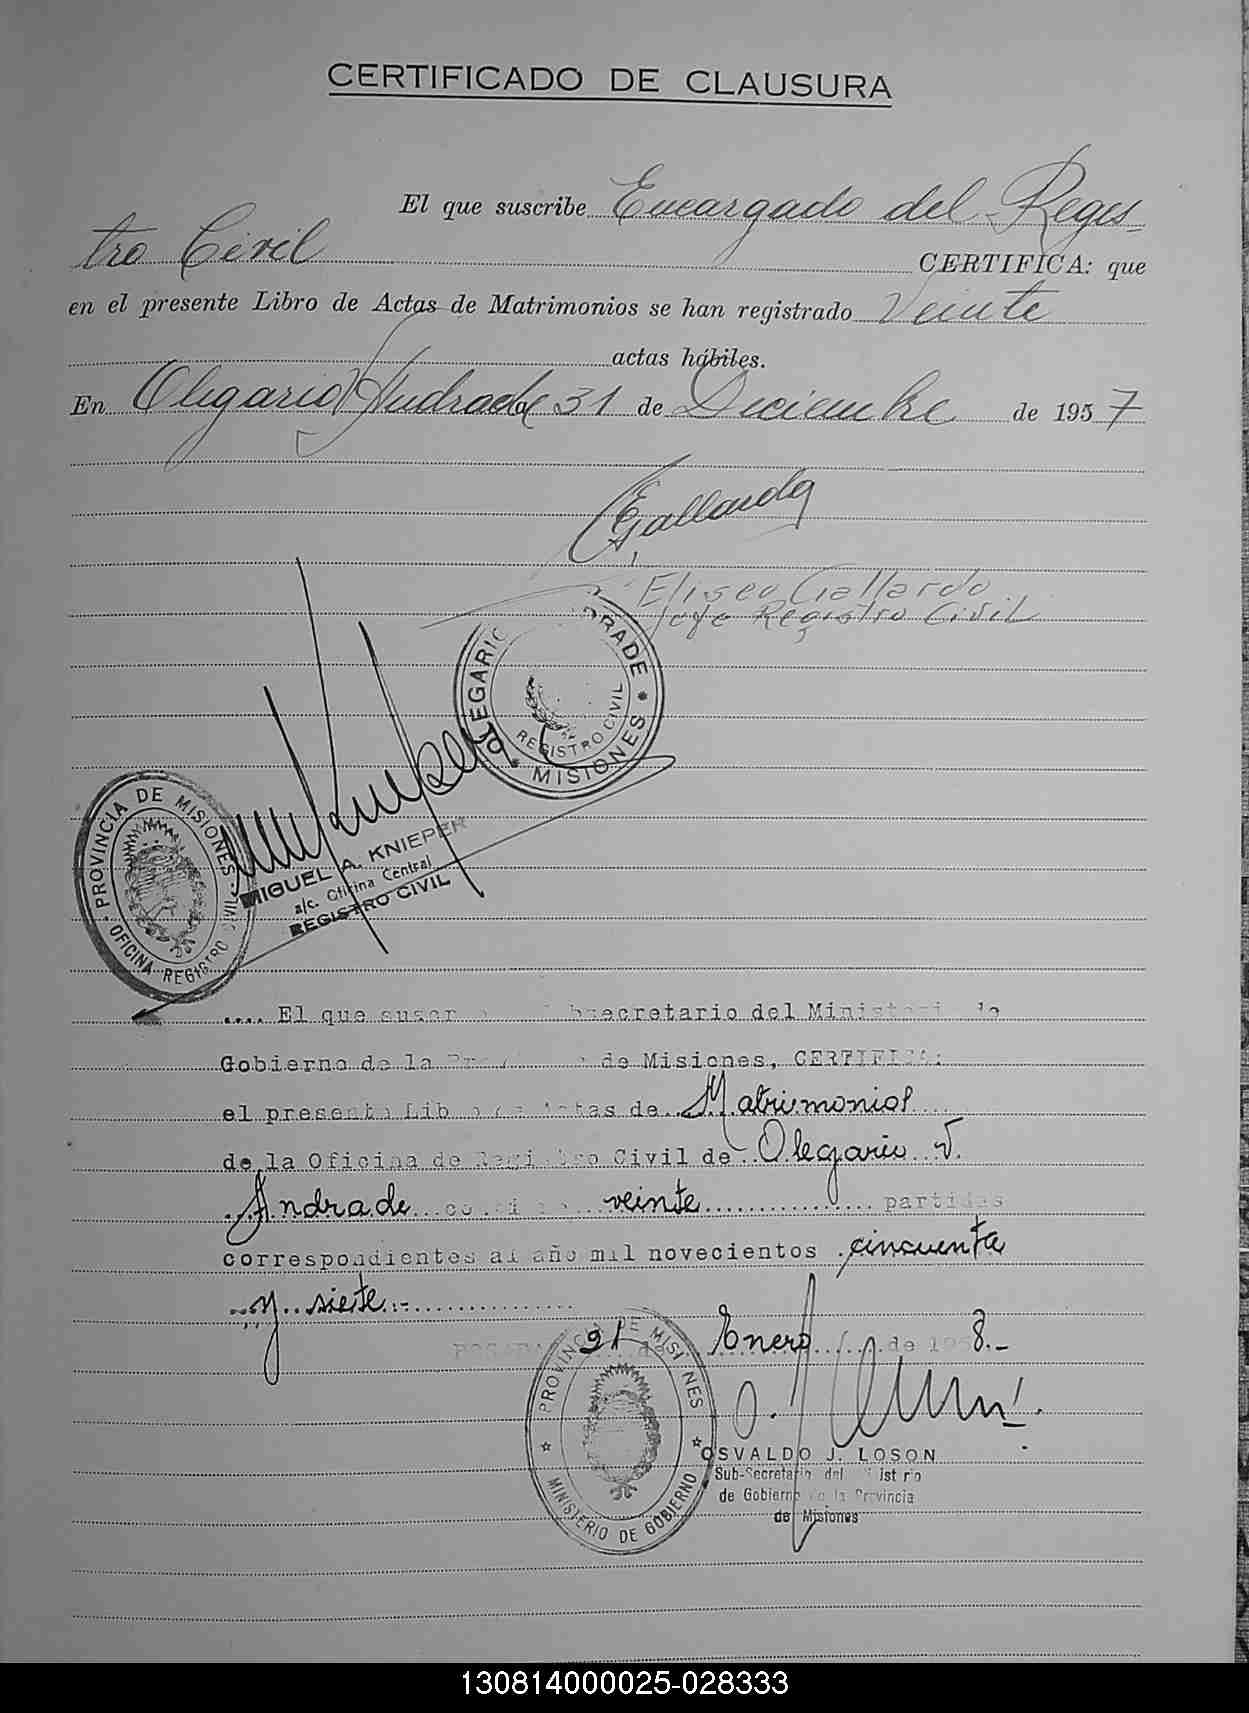 CERTIFICADO DE CLAUSURA
El que suscribe Encargado del Regis-
tro Civil CERTIFICA: que
en el presente Libro de Actas de Matrimonios se han registrado Veinte
actas hábiles.
En Olegario V Andrade 31 de Diciembre de 1957
EGallardo
Eliseo Gallardo
Jefe Registro Civil
OLEGARIO RADE
REGISTRO CIVIL
* MISIONES *
PROVINCIA DE MISIONES
OFICINA REGISTRO CIVIL
MIGUEL A. KNIEPER
a/c. Oficina Central
REGISTRO CIVIL
.... El que suscr bsecretario del Ministeri de
Gobierno de la Pro de Misiones, CERTIFICA:
el presente Libro de Actas de Matrimonios
de la Oficina de Registro Civil de Olegario V.
Andrade veinte partidas
correspondientes al año mil novecientos cincuenta
y siete.-
POSADAS 21 de Enero de 1958.-
PROVINCIA DE MISIONES
* MINISTERIO DE GOBIERNO *
OSVALDO J. LOSON
Sub-Secretario del Ministerio
de Gobierno de la Provincia
de Misiones
130814000025-028333